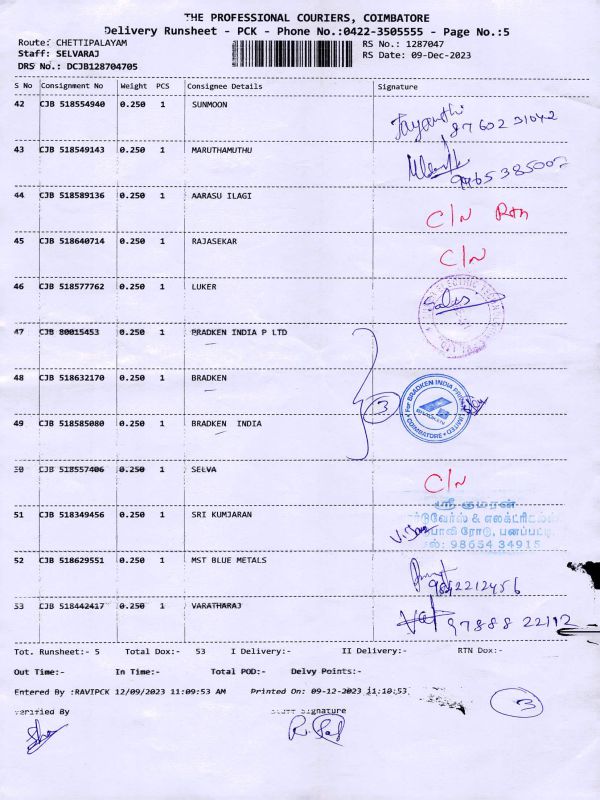 THE PROFESSIONAL COURIERS, COIMBATORE
Delivery Runsheet - PCK - Phone No.:0422-3505555 - Page No.:5
Route: CHETTIPALAYAM RS No.: 1287047
Staff: SELVARAJ RS Date: 09-Dec-2023
DRS No.: DCJB128704705
S No Consignment No Weight PCS Consignee Details Signature
42 CJB 518554940 0.250 1 SUNMOON
Jayanthi
97602 31042
43 CJB 518549143 0.250 1 MARUTHAMUTHU
9965385002
44 CJB 518589136 0.250 1 AARASU ILAGI
C/N Rtn
45 CJB 518640714 0.250 1 RAJASEKAR
C/N
46 CJB 518577762 0.250 1 LUKER
Sales
47 CJB 80015453 0.250 1 BRADKEN INDIA P LTD
48 CJB 518632170 0.250 1 BRADKEN
3
For BRADKEN INDIA PRIVATE LIMITED
BRADKEN
COIMBATORE
49 CJB 518585080 0.250 1 BRADKEN INDIA
50 CJB 518557406 0.250 1 SELVA
C/N
51 CJB 518349456 0.250 1 SRI KUMJARAN
ஸ்ரீ குமரன்
ஹார்டுவேர்ஸ் & எலக்ட்ரிகல்ஸ்
ரோடு,
செல்: 98654 34915
52 CJB 518629551 0.250 1 MST BLUE METALS
9842212456
53 CJB 518442417 0.250 1 VARATHARAJ
97888 22112
Tot. Runsheet:- 5 Total Dox:- 53 I Delivery:- II Delivery:- RTN Dox:-
Out Time:- In Time:- Total POD:- Delvy Points:-
Entered By :RAVIPCK 12/09/2023 11:09:53 AM Printed On: 09-12-2023 11:10:53
3
Verified By Staff Signature